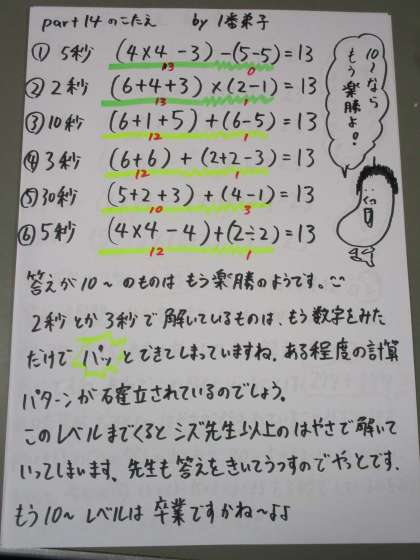 part14のこたえ by 1番弟子
① 5秒 (4×4-3)-(5-5)=13
13 0
② 2秒 (6+4+3)×(2-1)=13
13 1
③ 10秒 (6+1+5)+(6-5)=13
12 1
④ 3秒 (6+6)+(2+2-3)=13
12 1
⑤ 30秒 (5+2+3)+(4-1)=13
10 3
⑥ 5秒 (4×4-4)+(2÷2)=13
12 1
10〜なら
もう楽勝よ!
答えが10〜のものはもう楽勝のようです。
2秒とか3秒で解いているものは、もう数字をみた
だけでパッとできてしまっていますね。ある程度の計算
パターンが確立されているのでしょう。
このレベルまでくるとシズ先生以上のはやさで解いて
いってしまいます、先生も答えをきいてうつすのでやっとです。
もう10〜レベルは卒業ですかね〜よよ